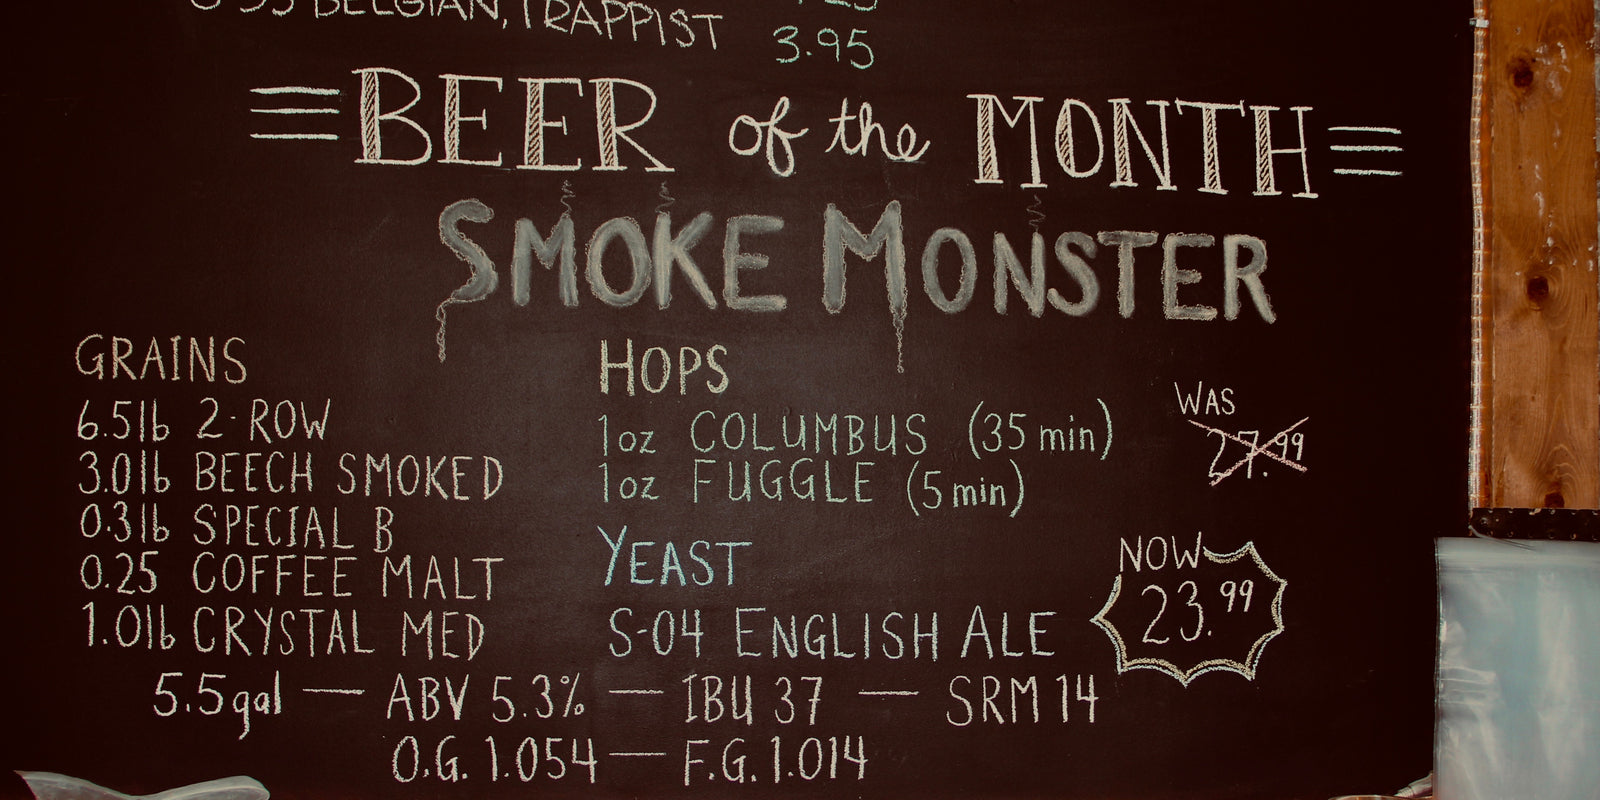 BELGIAN, TRAPPIST
3.95
BEER of the MONTH
SMOKE MONSTER
GRAINS
6.5lb 2-ROW
3.0lb BEECH SMOKED
0.3lb SPECIAL B
0.25 COFFEE MALT
1.0lb CRYSTAL MED
HOPS
1oz COLUMBUS (35 min)
1oz FUGGLE (5 min)
YEAST
S-04 ENGLISH ALE
WAS
27.99
NOW
23.99
5.5gal — ABV 5.3% — IBU 37 — SRM 14
O.G. 1.054 — F.G. 1.014